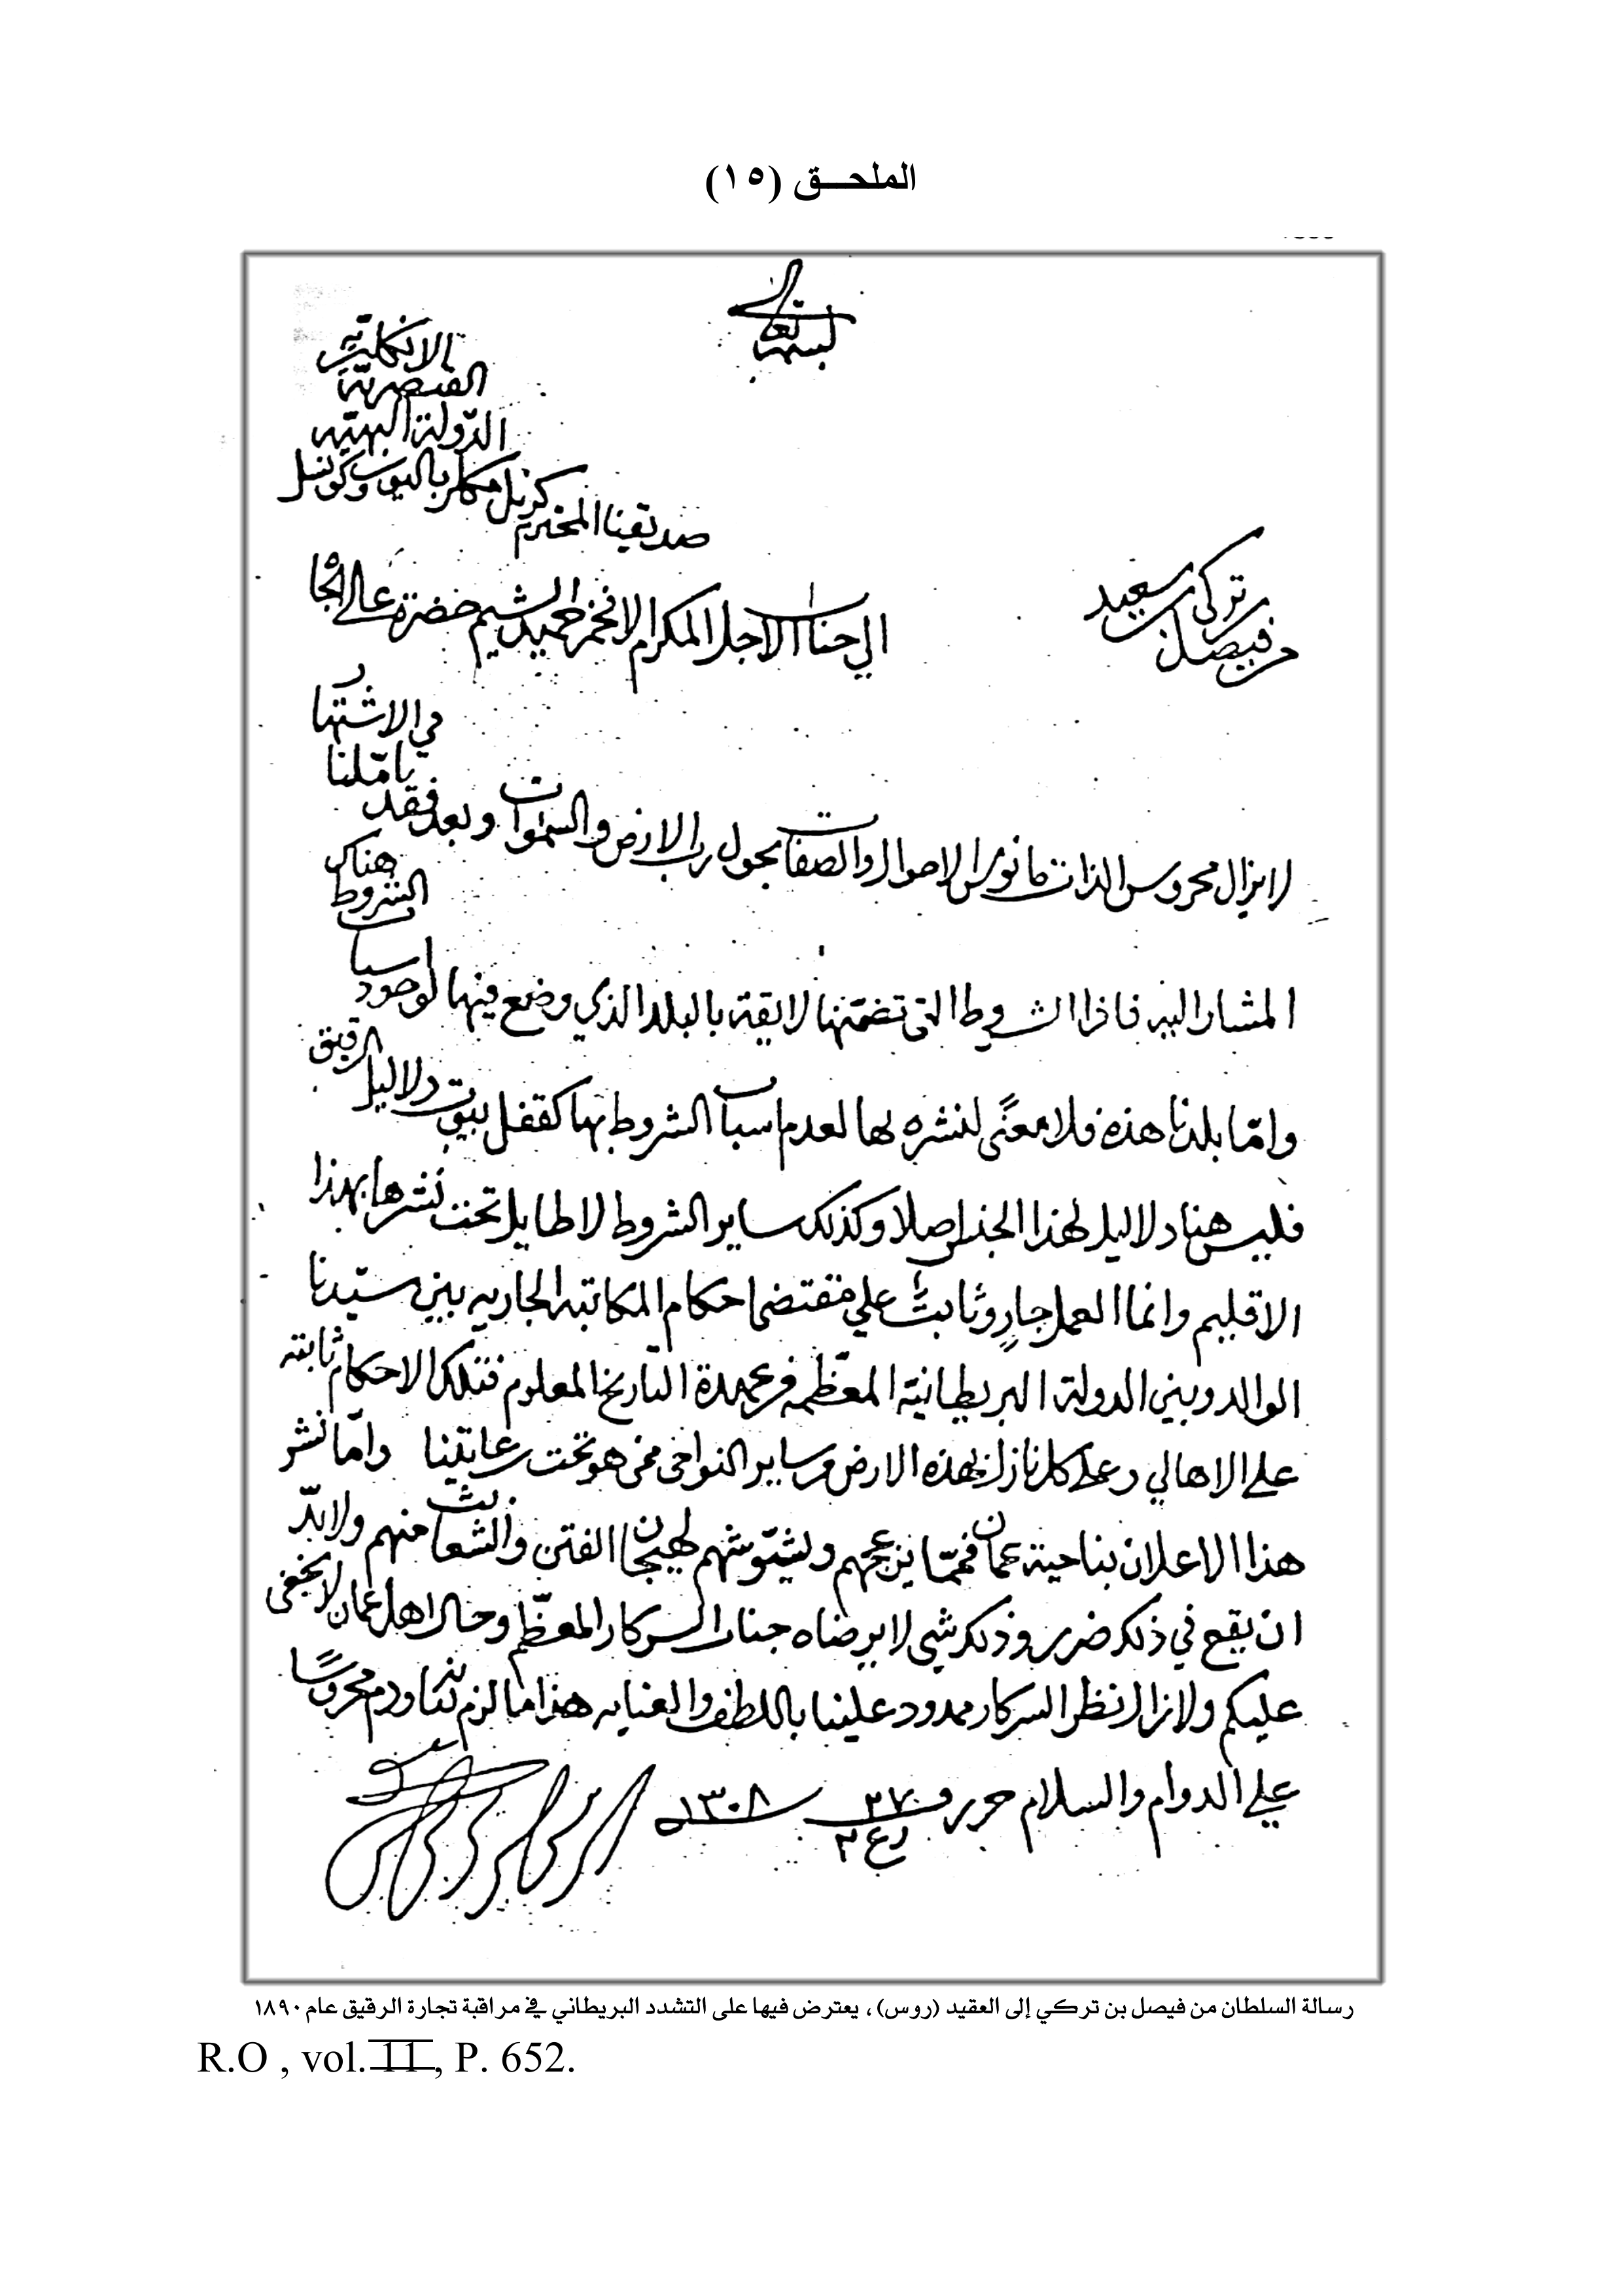 الملحـــق (١٥)
بسمه تعالى
من فيصل بن تركي بن سعيد
الى جناب الاجل المكرم الافخم حميد الشيم حضرة عالي الجاه
صديقنا المحترم كرنل باليوز وكونسل
الدولة البهيه
القيصرية
الانكليزيه
لا يزال محروس الذات مانوس الاحوال والصفات بحول رب الارض والسموات وبعد فقد
تاملنا
في الاشتهار
المشار اليه فاذا الشروط التي تضمنها لايقة بالبلد الذي وضع فيها لوجود
اسباب
الشروط
هناك
واما بلدنا هذه فلا معنًى لنشره لها لعدم اسباب الشروط بها كقفل بيوت دلاليل الرقيق
فليس هنا دلاليل لهذا الجنس اصلا وكذلك ساير الشروط لا طايل تحت نشرها بهذا
الاقليم وانما العمل جارٍ وثابت علي مقتضى احكام المكاتبه الجاريه بين سيّدنا
الوالد وبين الدولة البريطانية المعظّمه التاريخ المعلوم فتلك الاحكام ثابته
على الاهالي وعلى كل نازل بهذه الارض وساير النواحي ممن هو تحت رعايتنا وامّا نشر
هذا الاعلان بناحية عمان فممّا يزعجهم ويشوّشهم لهيجان الفتن والشعاث منهم ولابدّ
ان يقع في ذلك ضرر وذلك شي لا يرضاه جناب السركار المعظّم وحال اهل عمان لا يخفى
عليكم ولازال نظر السركار ممدود علينا باللطف والعنايه هذا ما لزم ودم محروسًا
علي الدوام والسلام حرر في ٢٧ ربيع ٢ سنة ١٣٠٨
رسالة السلطان من فيصل بن تركي إلى العقيد (روس) ، يعترض فيها على التشدد البريطاني في مراقبة تجارة الرقيق عام ١٨٩٠
R.O , vol. II, P. 652.